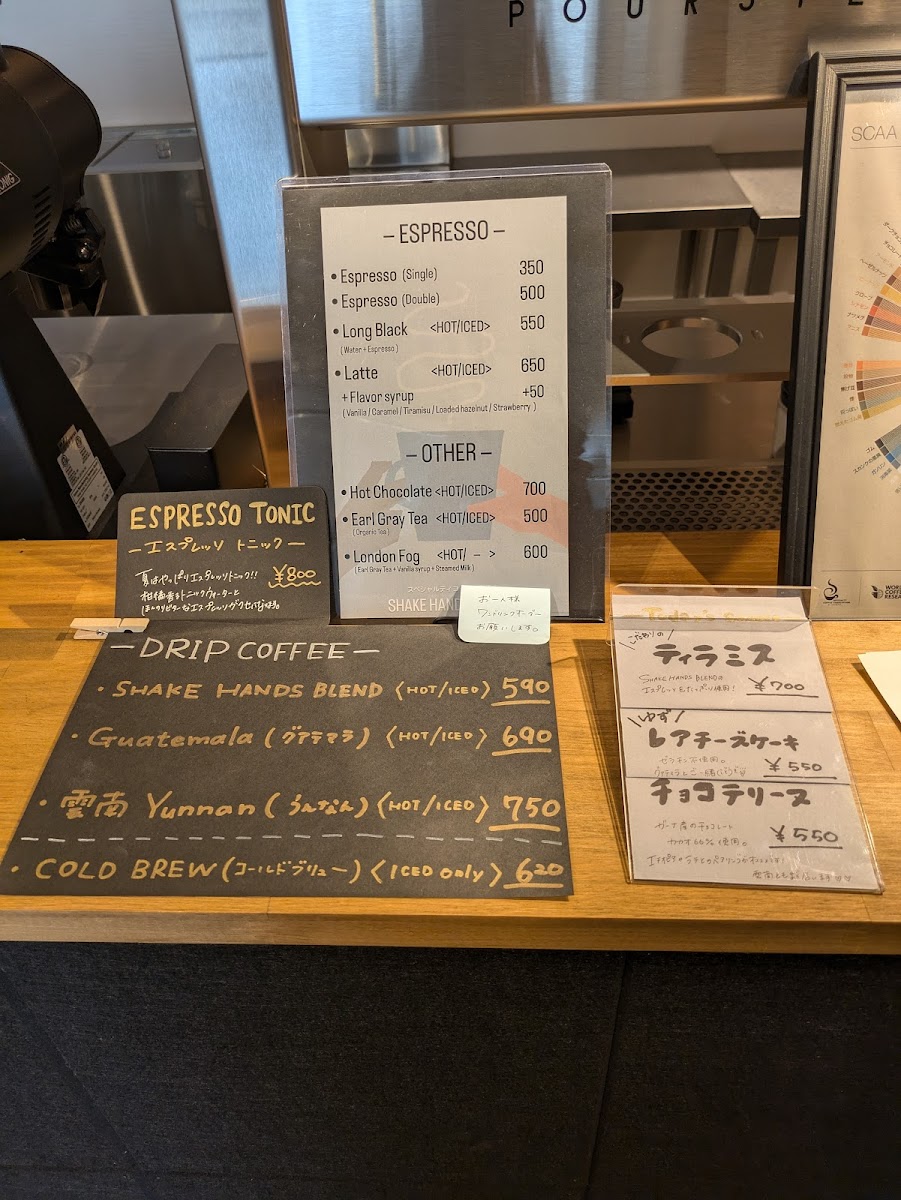 POURSTE
SCAA
– ESPRESSO –
• Espresso (Single) 350
• Espresso (Double) 500
• Long Black <HOT/ICED> 550
(Water + Espresso)
• Latte <HOT/ICED> 650
+ Flavor syrup +50
(Vanilla / Caramel / Tiramisu / Loaded hazelnut / Strawberry)
– OTHER –
• Hot Chocolate <HOT/ICED> 700
• Earl Gray Tea <HOT/ICED> 500
(Organic Tea)
• London Fog <HOT/ – > 600
(Earl Gray Tea + Vanilla syrup + Steamed Milk)
SHAKE HAN
お一人様
ワンドリンクオーダー
お願いします。
ESPRESSO TONIC
ーエスプレッソ トニックー
夏はやっぱりエスプレッソトニック!! ¥800
柑橘香るトニックウォーターと
ほんのりビターなエスプレッソがクセになる。
—DRIP COFFEE—
・SHAKE HANDS BLEND〈HOT/ICED〉590
・Guatemala(グアテマラ)〈HOT/ICED〉690
・雲南 Yunnan(うんなん)〈HOT/ICED〉750
・COLD BREW(コールドブリュー)〈ICED only〉620
Today's
こだわりの
ティラミス
SHAKE HANDS BLENDの
エスプレッソをたっぷり使用! ¥700
ゆず
レアチーズケーキ
ゼラチン不使用。
¥550
チョコテリーヌ
ガーナ産のチョコレート
カカオ66%使用。 ¥550